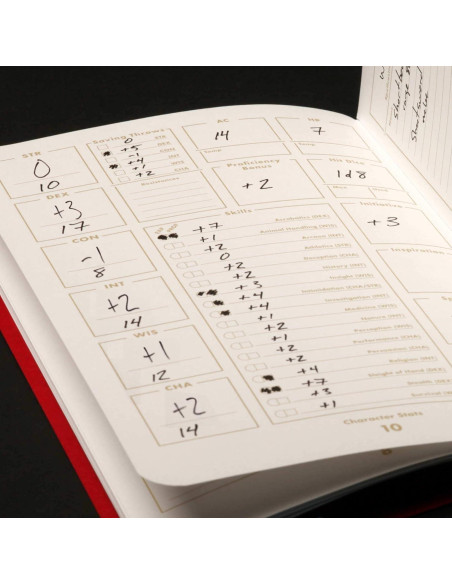 STR
0
10
DEX
+3
17
CON
-1
8
INT
+2
14
WIS
+1
12
CHA
+2
14
Saving Throws
0 STR
+5 DEX
-1 CON
+4 INT
+1 WIS
+2 CHA
AC
14
HP
7
Proficiency Bonus
+2
Hit Dice
1d8
Initiative
+3
Inspiration
Skills
+7 Acrobatics (DEX)
+1 Animal Handling (WIS)
+2 Arcana (INT)
0 Athletics (STR)
+2 Deception (CHA)
+2 History (INT)
+3 Insight (WIS)
+4 Intimidation (CHA/STR)
+4 Investigation (INT)
+1 Medicine (WIS)
+2 Nature (INT)
+1 Perception (WIS)
+2 Performance (CHA)
+2 Persuasion (CHA)
+4 Religion (INT)
+7 Sleight of Hand (DEX)
+3 Stealth (DEX)
+1 Survival
Character Stats
10
Shortbow
range
Shortsword
melee